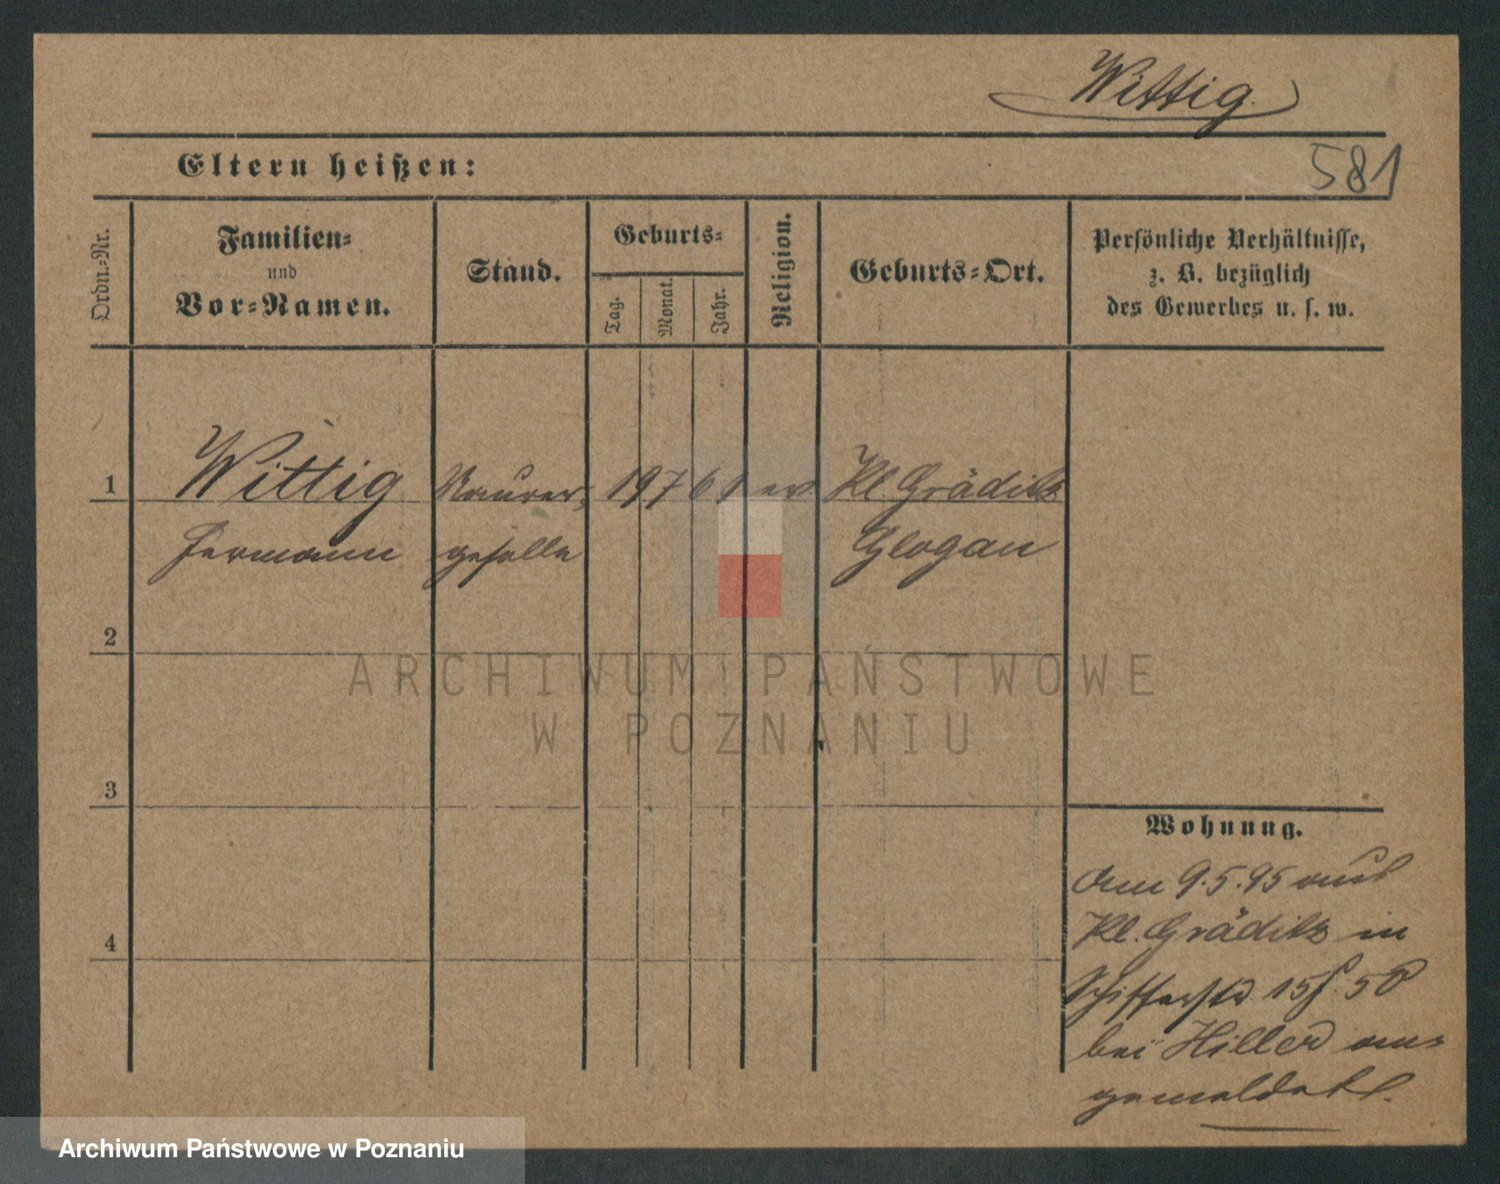 Wittig
Eltern heißen:
581
Ordn.-Nr.
Familien-
und
Vor-Namen.
Stand.
Geburts-
Tag.
Monat.
Jahr.
Religion.
Geburts-Ort.
Persönliche Verhältnisse,
z. B. bezüglich
des Gewerbes u. s. w.
1 Wittig Maurer- 19 7 61 ev. Kl. Gräditz
Hermann geselle Glogau
2
ARCHIWUM PAŃSTWOWE
W POZNANIU
3
Wohnung.
Am 9.5.95 aus
Kl. Gräditz in
4
Schifferstr 15
bei Hiller an-
gemeldet.
Archiwum Państwowe w Poznaniu